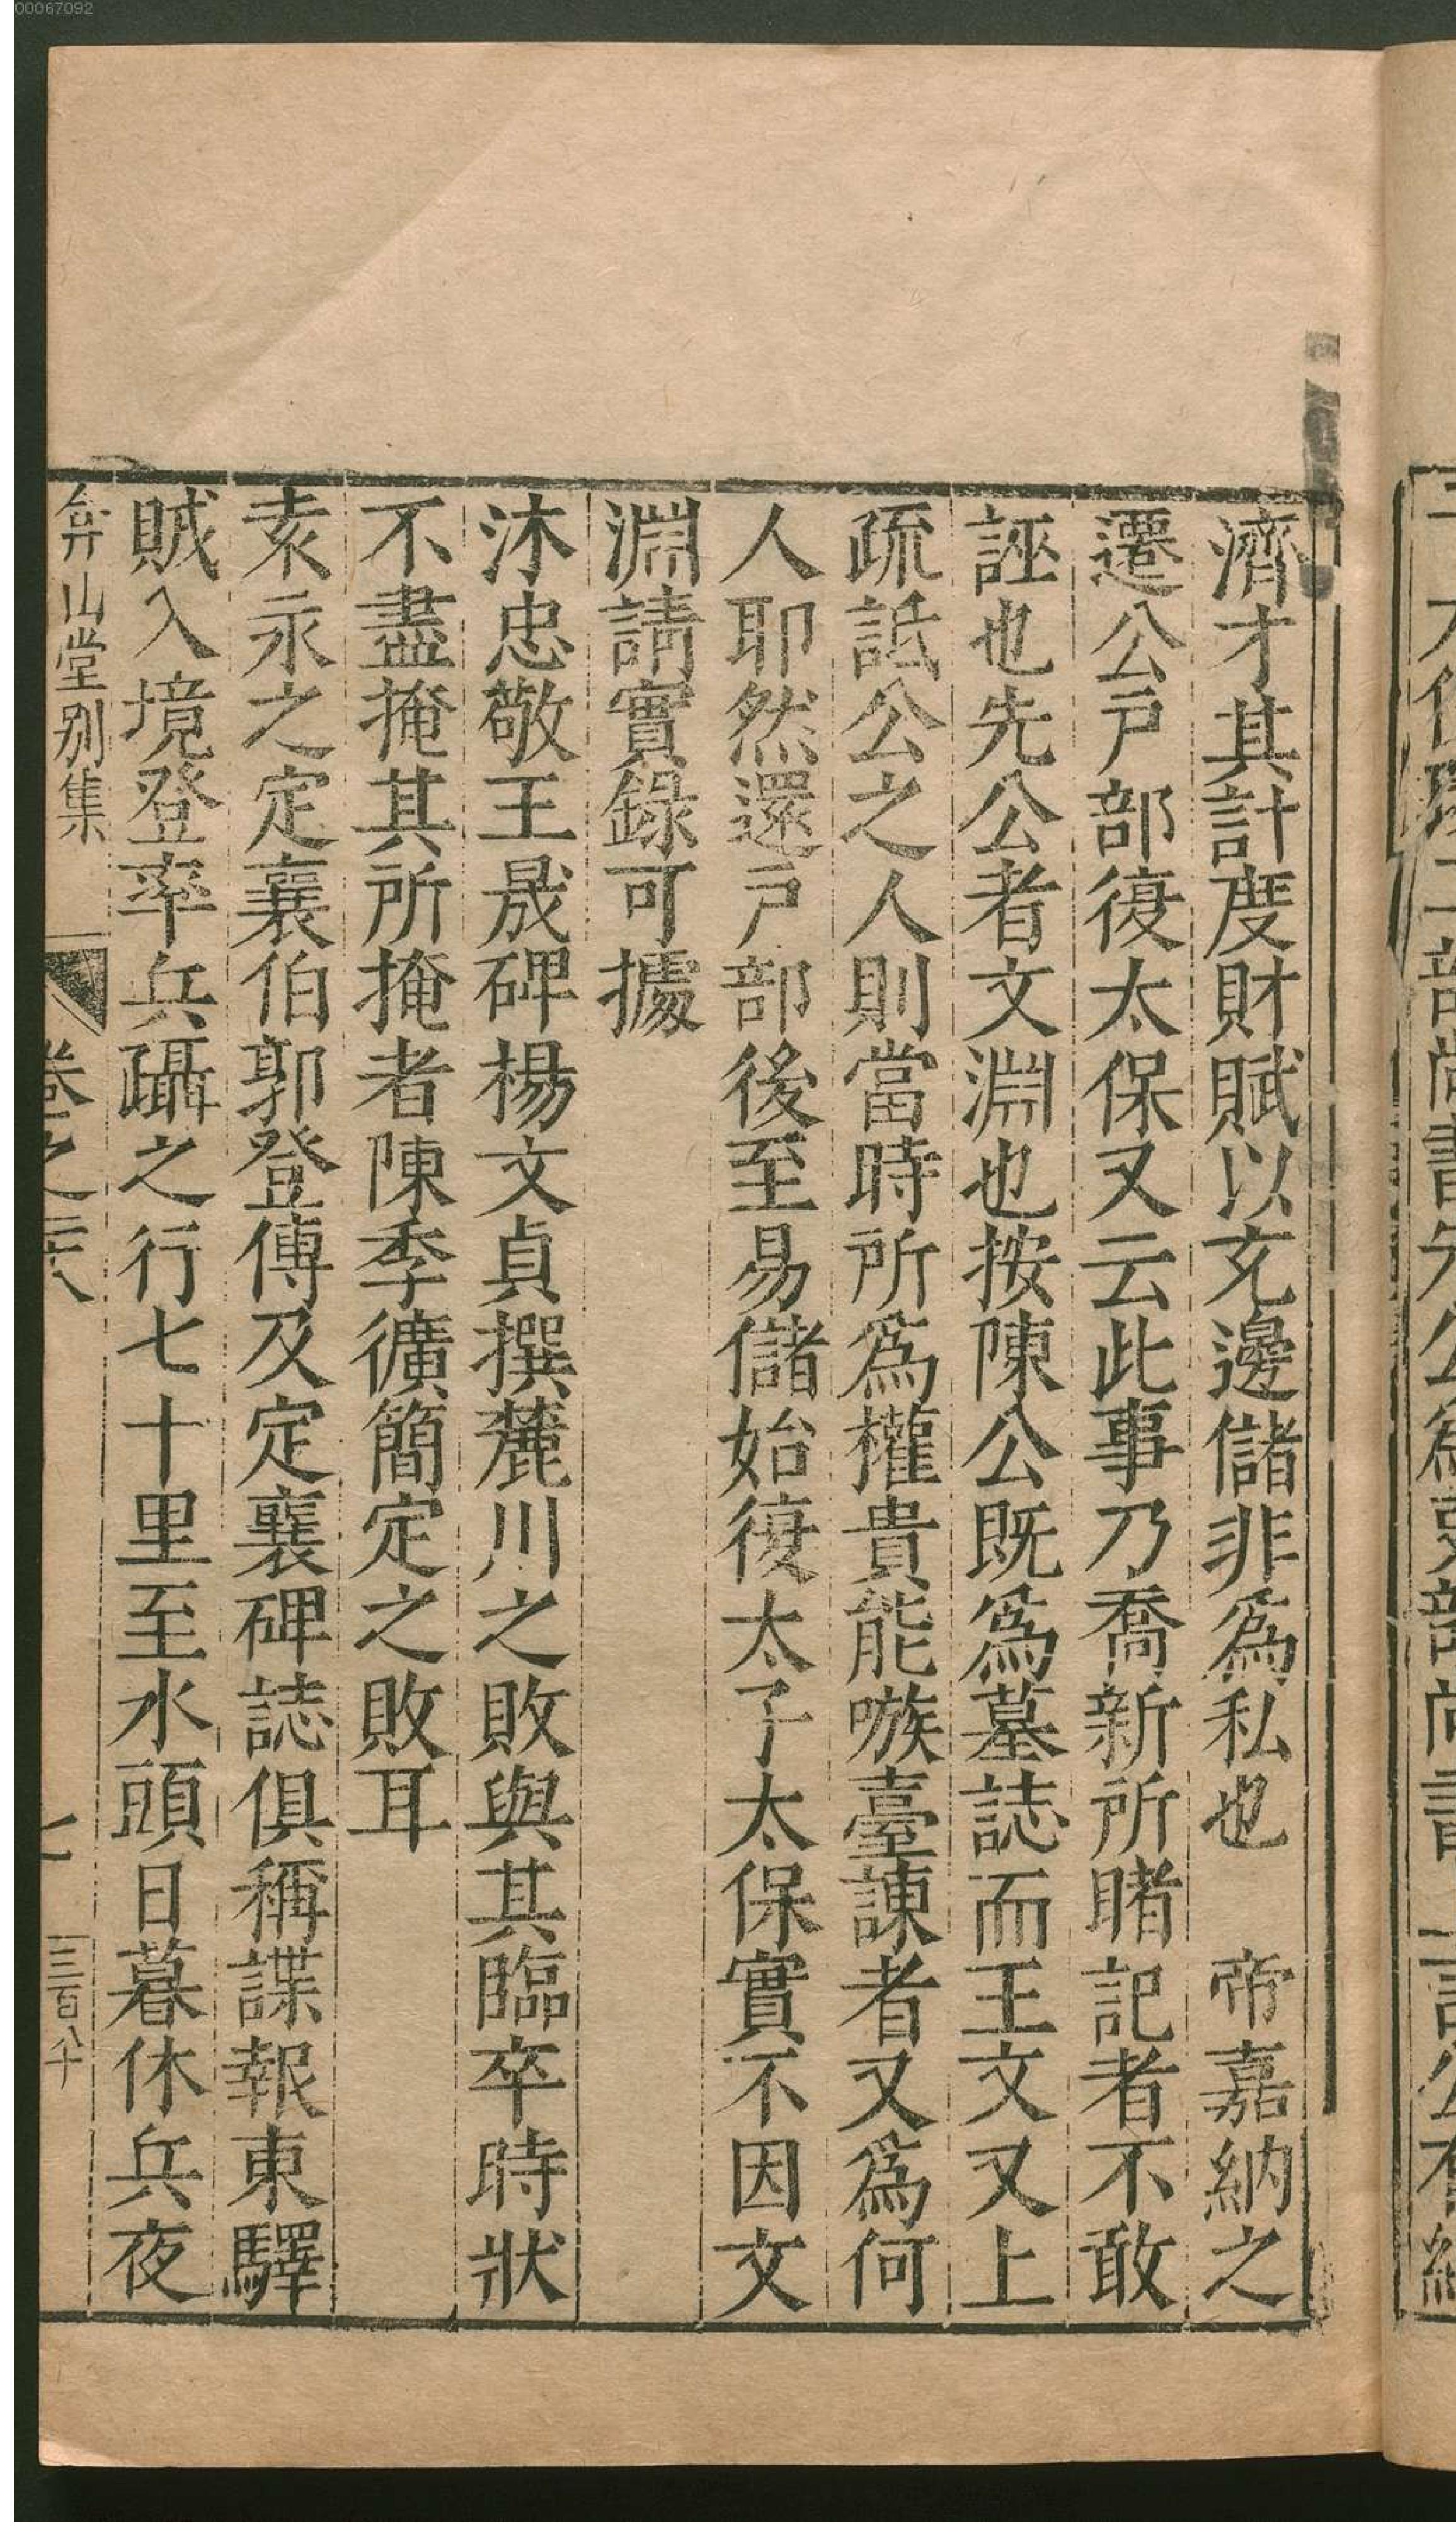 00067092
濟才其計度財賦以充邊儲非爲私也　帝嘉納之
遷公戶部復太保又云此事乃喬新所睹記者不敢
誣也先公者文淵也按陳公既爲墓誌而王文又上
疏詆公之人則當時所爲權貴能嗾臺諫者又爲何
人耶然還戶部後至易儲始復太子太保實不因文
淵請實錄可據
沐忠敬王晟碑楊文貞撰麓川之敗與其臨卒時狀
不盡掩其所掩者陳季獷簡定之敗耳
袁永之定襄伯郭登傳及定襄碑誌俱稱諜報東驛
賊入境登率兵躡之行七十里至水頭日暮休兵夜
弇山堂別集
卷之二十八
七
三百八十